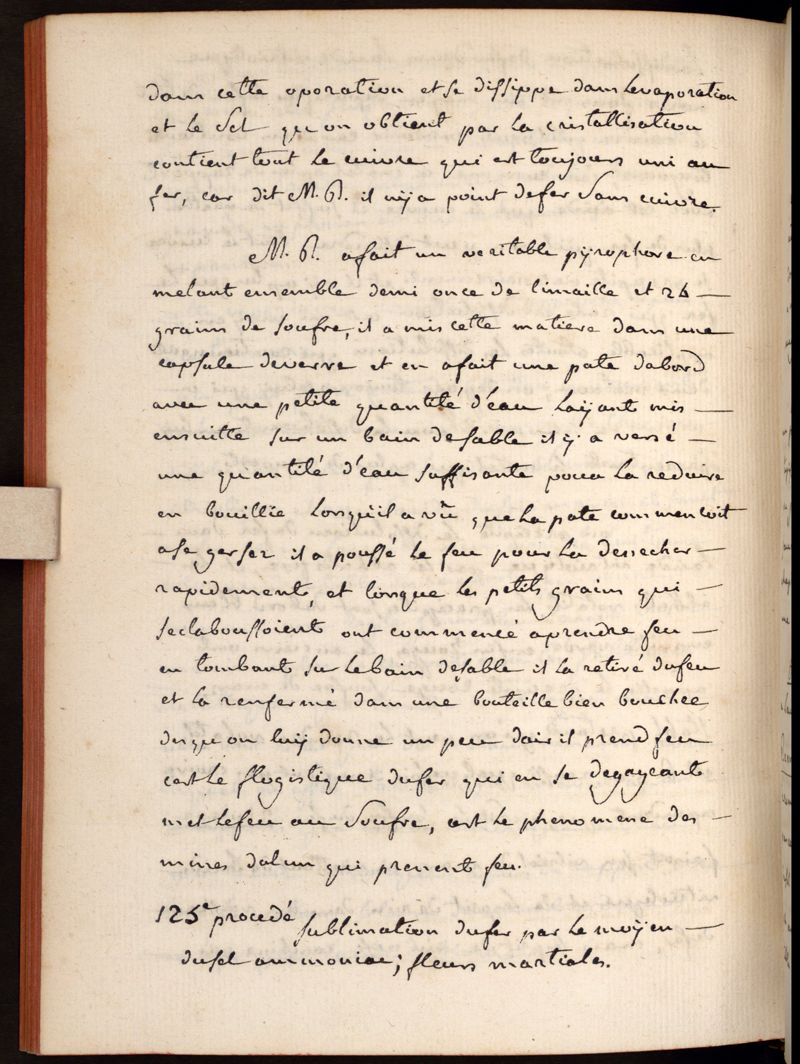 dans cette operation et se dissippe dans levaporation
et le Sel qu on obtient par la cristallisation
contient tout le cuivre qui est toujours uni au
fer, car dit M. R. il n'ÿ a point defer Sans cuivre.
M. R. afait un veritable pÿrophore en
melant ensemble demi once de limaille et 24 —
grains de Soufre, il a mis cette matiere dans une
capsule deverre et en afait une pate dabord
avec une petite quantité d'eau laÿant mis —
ensuitte sur un bain desable il ÿ a versé —
une quantité d'eau suffisante pour la reduire
en bouillie lorsqu'il a vû que la pate commencoit
ase gerser il a poussé le feu pour la dessecher —
rapidement, et lorsque les petits grains qui —
seclaboussoient ont commencé aprendre feu —
en tombant sur lebain desable il la retiré dufeu
et la renfermé dans une bouteille bien bouchee
desqu on luÿ donne un peu dair il prend feu
cest le flogistique dufer qui en se degageant
met lefeu au Soufre, cest le phenomene des —
mines dalun qui prenent feu.
125e procedé sublimation dufer par le moÿen —
dusel ammoniac; fleurs martiales.